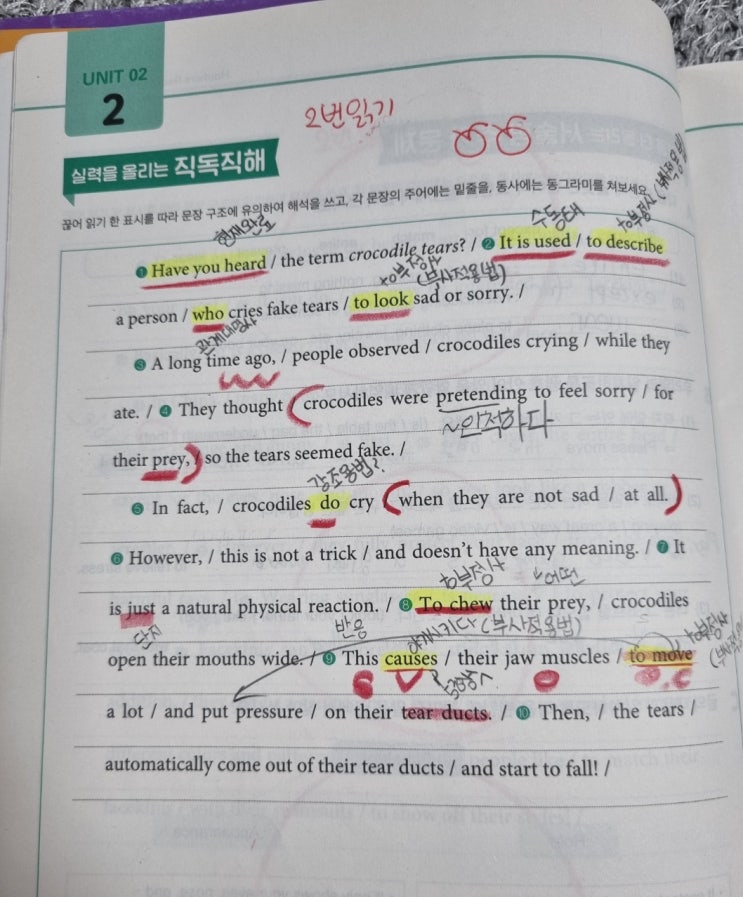 UNIT 02
2
2번읽기
실력을 올리는 직독직해
끊어 읽기 한 표시를 따라 문장 구조에 유의하여 해석을 쓰고, 각 문장의 주어에는 밑줄을, 동사에는 동그라미를 쳐보세요.
현재완료 수동태 to부정사 (부사적용법)
❶ Have you heard / the term crocodile tears? / ❷ It is used / to describe
to부정사 (부사적용법)
a person / who cries fake tears / to look sad or sorry. /
관계대명사
❸ A long time ago, / people observed / crocodiles crying / while they
ate. / ❹ They thought ( crocodiles were pretending to feel sorry / for
~인척하다
their prey,) / so the tears seemed fake. /
강조용법?
❺ In fact, / crocodiles do cry ( when they are not sad / at all. )
❻ However, / this is not a trick / and doesn't have any meaning. / ❼ It
to부정사 어떤
is just a natural physical reaction. / ❽ To chew their prey, / crocodiles
단지 반응 야기시키다 (부사적용법) to부정사
open their mouths wide. / ❾ This causes / their jaw muscles / to move
S V O O.C
a lot / and put pressure / on their tear ducts. / ❿ Then, / the tears /
automatically come out of their tear ducts / and start to fall! /